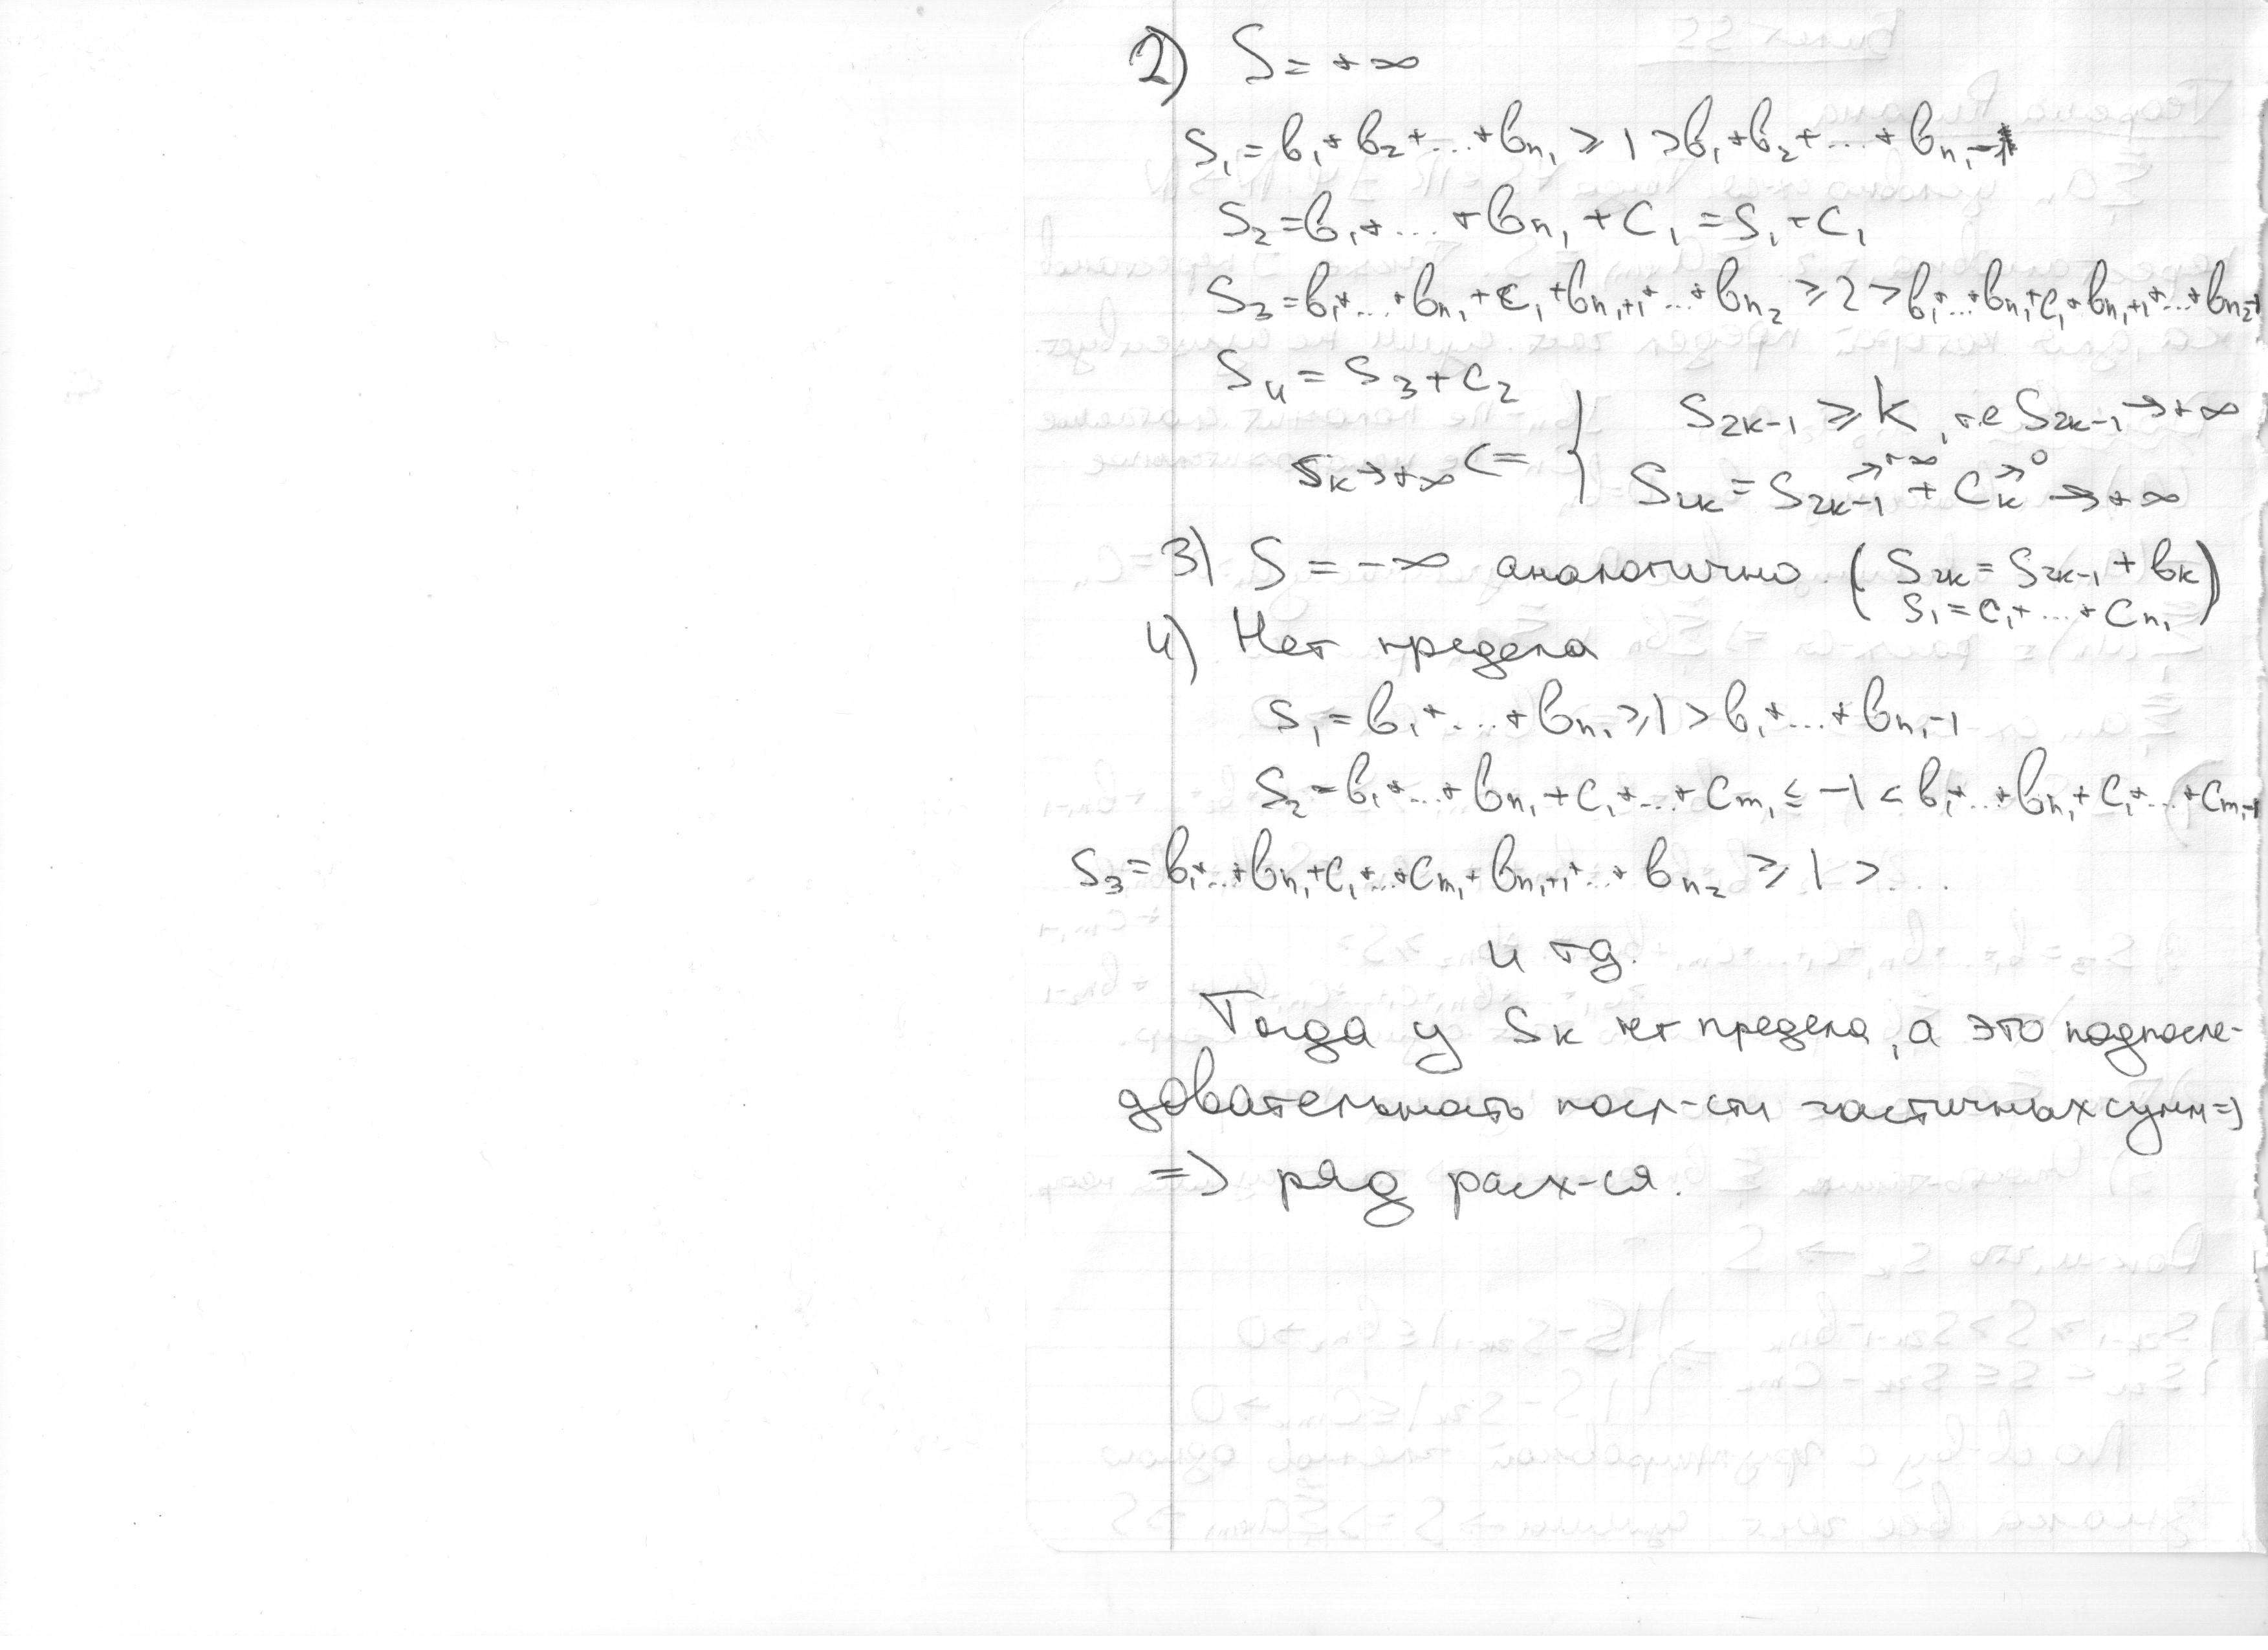 2) S = +∞
S₁ = b₁ + b₂ + ... + bₙ₁ ≥ 1 > b₁ + b₂ + ... + bₙ₁₋₁
S₂ = b₁ + ... + bₙ₁ + c₁ = S₁ + c₁
S₃ = b₁ + ... + bₙ₁ + c₁ + bₙ₁₊₁ + ... + bₙ₂ ≥ 2 > b₁ + ... + bₙ₁ + c₁ + bₙ₁₊₁ + ... + bₙ₂₋₁
S₄ = S₃ + c₂
Sₖ → +∞ <= { S₂ₖ₋₁ ≥ k, т.е S₂ₖ₋₁ → +∞
S₂ₖ = S₂ₖ₋₁ →+∞ + cₖ →0 → +∞
3) S = -∞ аналогично. (S₂ₖ = S₂ₖ₋₁ + bₖ
S₁ = c₁ + ... + cₙ₁)
4) Нет предела
S₁ = b₁ + ... + bₙ₁ ≥ 1 > b₁ + ... + bₙ₁₋₁
S₂ = b₁ + ... + bₙ₁ + c₁ + ... + cₘ₁ ≤ -1 < b₁ + ... + bₙ₁ + c₁ + ... + cₘ₁₋₁
S₃ = b₁ + ... + bₙ₁ + c₁ + ... + cₘ₁ + bₙ₁₊₁ + ... + bₙ₂ ≥ 1 > ...
и тд.
Тогда у Sₖ нет предела, а это подпосле-
довательность посл-сти частичных сумм =>
=> ряд расх-ся.